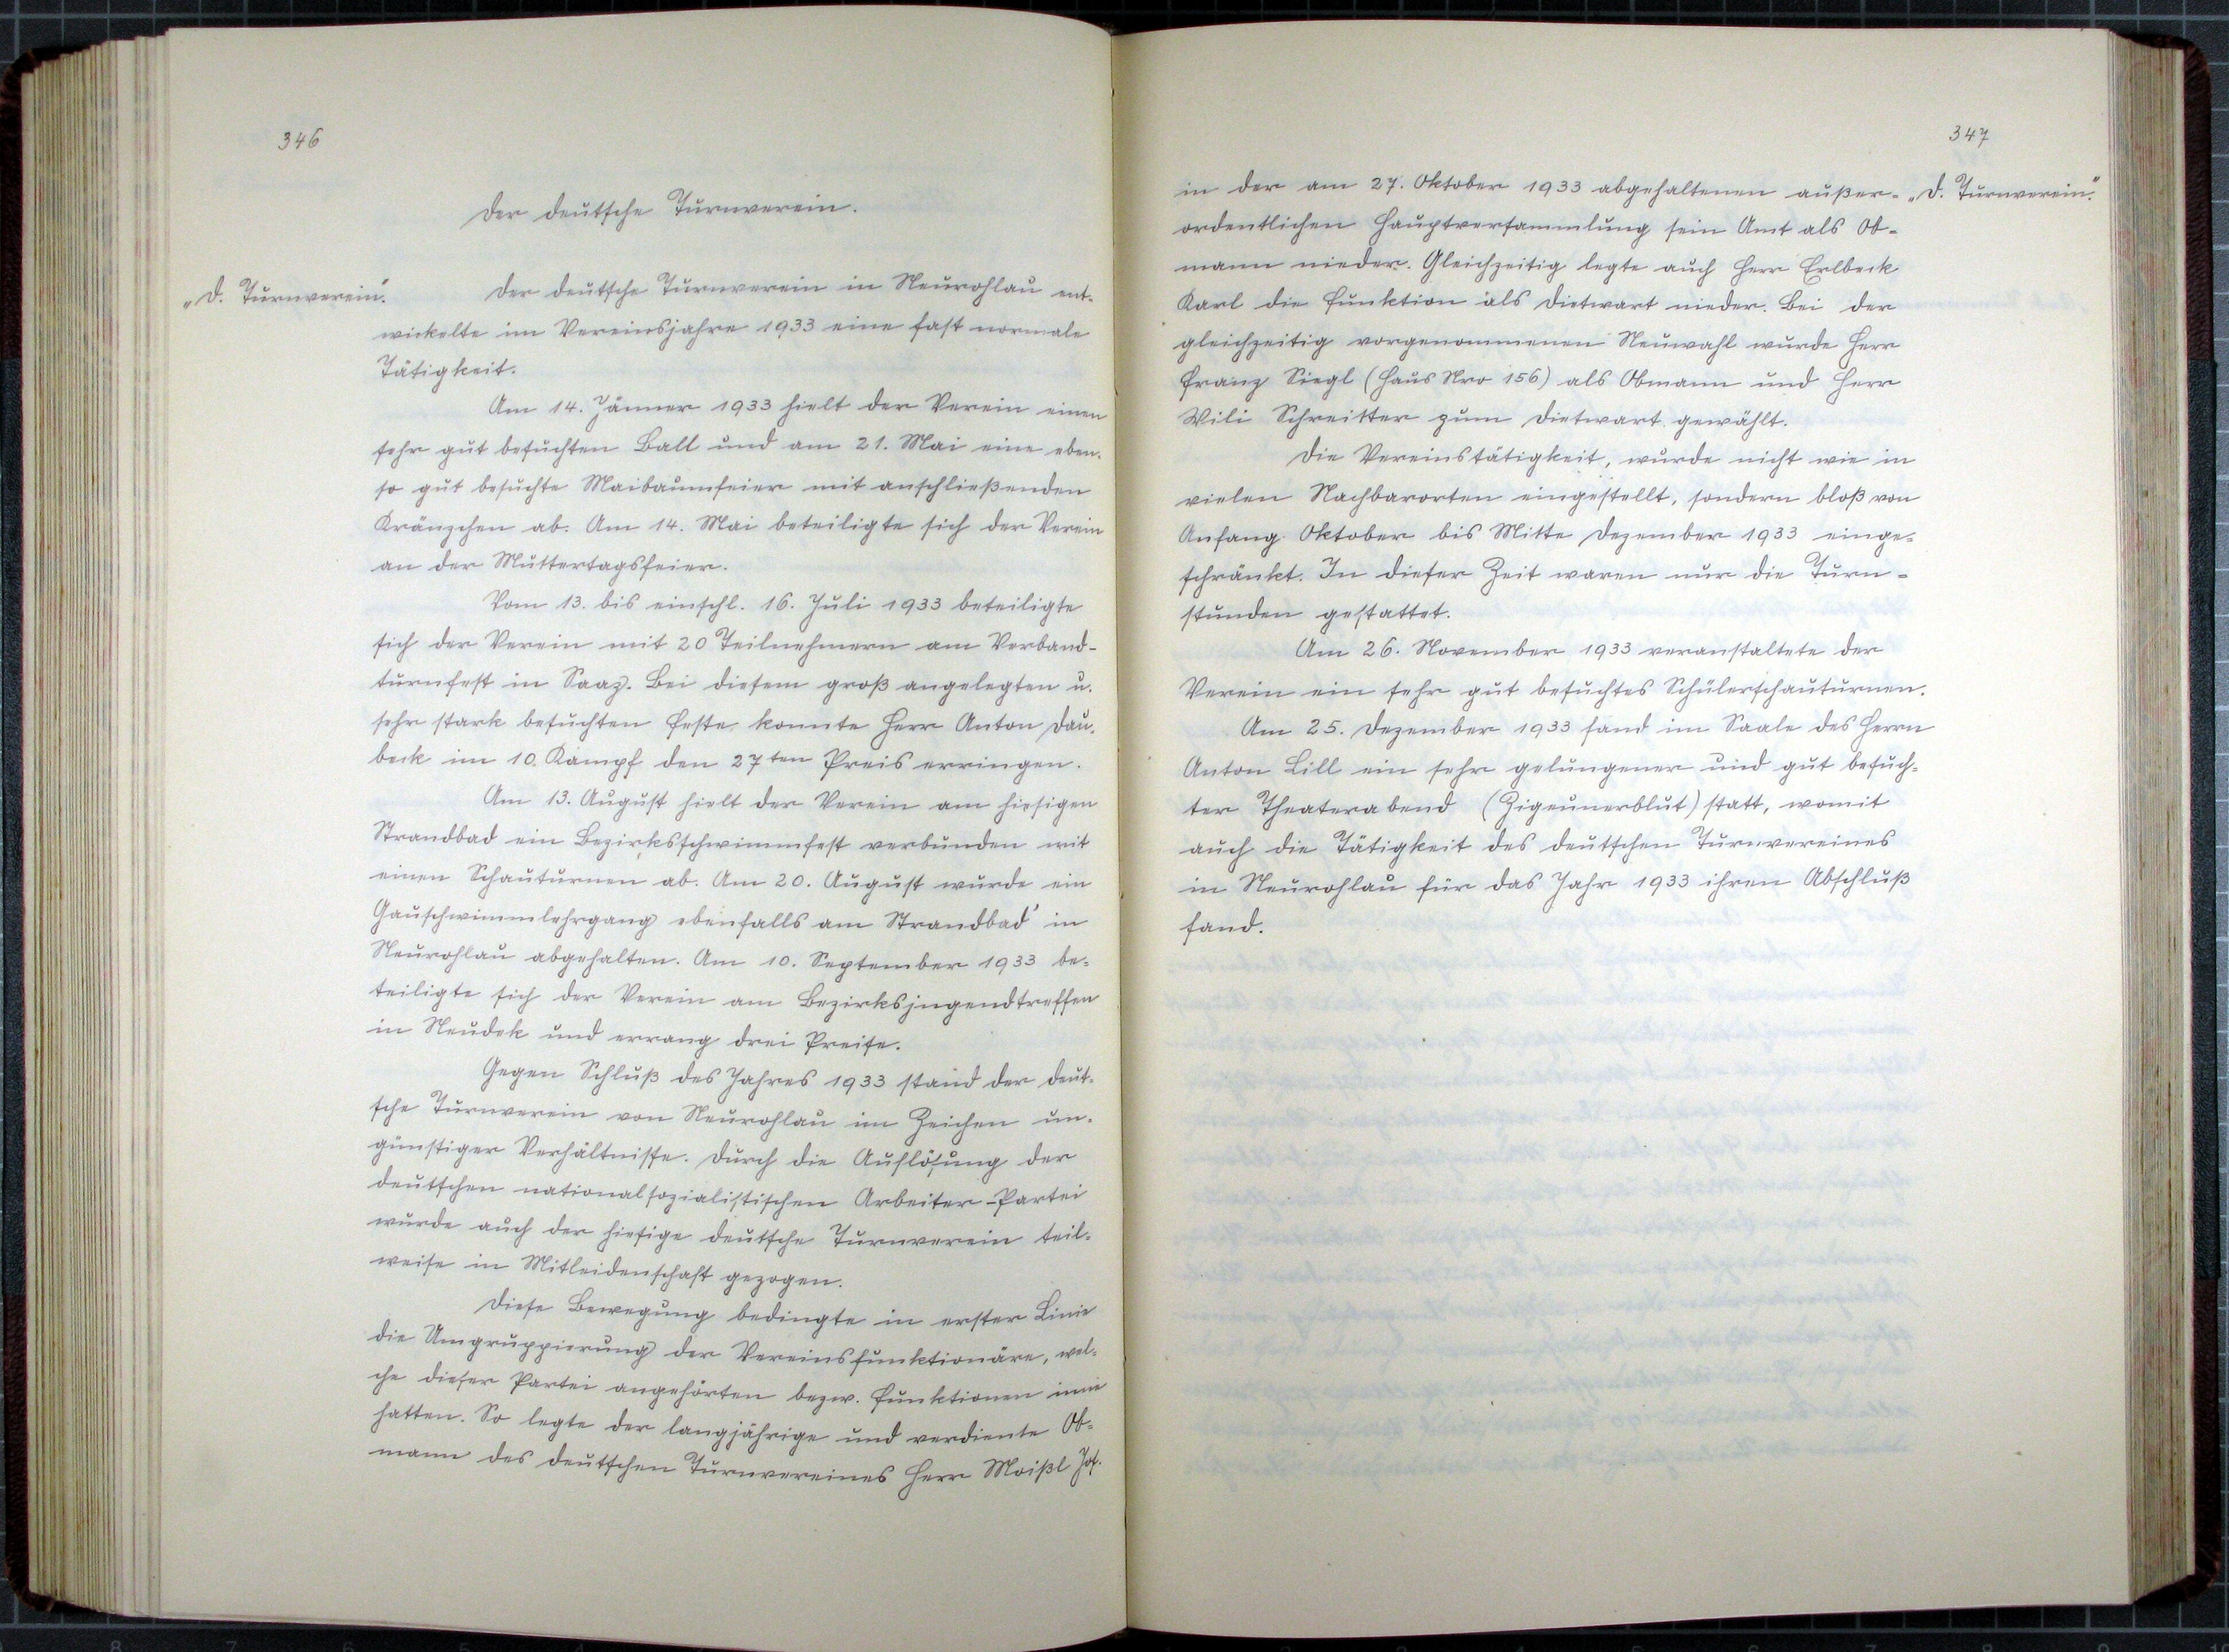 346
Der deutsche Turnverein.
„D. Turnverein".
Der deutsche Turnverein in Neurohlau ent-
wickelte im Vereinsjahre 1933 eine fast normale
Tätigkeit.
Am 14. Jänner 1933 hielt der Verein einen
sehr gut besuchten Ball und am 21. Mai eine eben-
so gut besuchte Maibaumfeier mit anschließenden
Kränzchen ab. Am 14. Mai beteiligte sich der Verein
an der Muttertagsfeier.
Vom 13. bis einschl. 16. Juli 1933 beteiligte
sich der Verein mit 20 Teilnehmern am Verband-
turnfest in Saaz. Bei diesem groß angelegten u.
sehr stark besuchten Feste konnte Herr Anton Dau-
beck im 10. Kampf den 27ten Preis erringen.
Am 13. August hielt der Verein am hiesigen
Strandbad ein Bezirksschwimmfest verbunden mit
einen Schauturnen ab. Am 20. August wurde ein
Gauschwimmlehrgang ebenfalls am Strandbad in
Neurohlau abgehalten. Am 10. September 1933 be-
teiligte sich der Verein am Bezirksjugendtreffen
in Neudek und errang drei Preise.
Gegen Schluß des Jahres 1933 stand der deut-
sche Turnverein von Neurohlau im Zeichen un-
günstiger Verhältnisse. Durch die Auflösung der
deutschen nationalsozialistischen Arbeiter-Partei
wurde auch der hiesige deutsche Turnverein teil-
weise in Mitleidenschaft gezogen.
Diese Bewegung bedingte in erster Linie
die Umgruppierung der Vereinsfunktionäre, wel-
che dieser Partei angehörten bezw. Funktionen inne
hatten. So legte der langjährige und verdiente Ob-
mann des deutschen Turnvereines Herr Moißl Jos.
347
„D. Turnverein."
in der am 27. Oktober 1933 abgehaltenen außer-
ordentlichen Hauptversammlung sein Amt als Ob-
mann nieder. Gleichzeitig legte auch Herr Erlbeck
Karl die Funktion als Dietwart nieder. Bei der
gleichzeitig vorgenommenen Neuwahl wurde Herr
Franz Siegl (Haus Nro 156) als Obmann und Herr
Wili Schreitter zum Dietwart gewählt.
Die Vereinstätigkeit, wurde nicht wie in
vielen Nachbarorten eingestellt, sondern bloß von
Anfang Oktober bis Mitte Dezember 1933 einge-
schränkt. In dieser Zeit waren nur die Turn-
stunden gestattet.
Am 26. November 1933 veranstaltete der
Verein ein sehr gut besuchtes Schülerschauturnen.
Am 25. Dezember 1933 fand im Saale des Herrn
Anton Lill ein sehr gelungener und gut besuch-
ter Theaterabend (Zigeunerblut) statt, womit
auch die Tätigkeit des deutschen Turnvereines
in Neurohlau für das Jahr 1933 ihren Abschluß
fand.